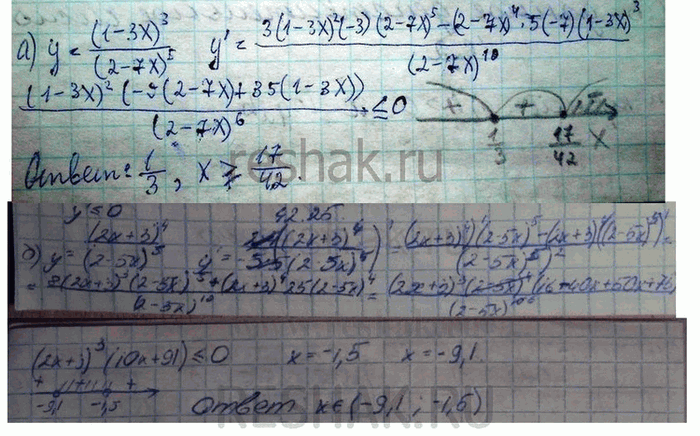 а) y = (1-3x)³/(2-7x)⁵ y' = 3(1-3x)²(-3)(2-7x)⁵-(2-7x)⁴·5(-7)(1-3x)³/(2-7x)¹⁰
(1-3x)²(-9(2-7x)+35(1-3x))/(2-7x)⁶ ≤0
+ + 1/3 17/42 x
Ответ: 1/3, x ≥ 17/42.
reshak.ru
y' ≤ 0 42.25.
б) y = (2x+3)⁴/(2-5x)⁵
= 8(2x+3)³(2-5x)⁵+(2x+3)⁴25(2-5x)⁴/(2-5x)¹⁰ = (2x+3)³(2-5x)⁴(16-40x+50x+75)/(2-5x)¹⁰
(2x+3)³(10x+91)≤0 x=-1,5 x=-9,1
-9,1 -1,5 Ответ x∈(-9,1; -1,5)
RESHAK.RU